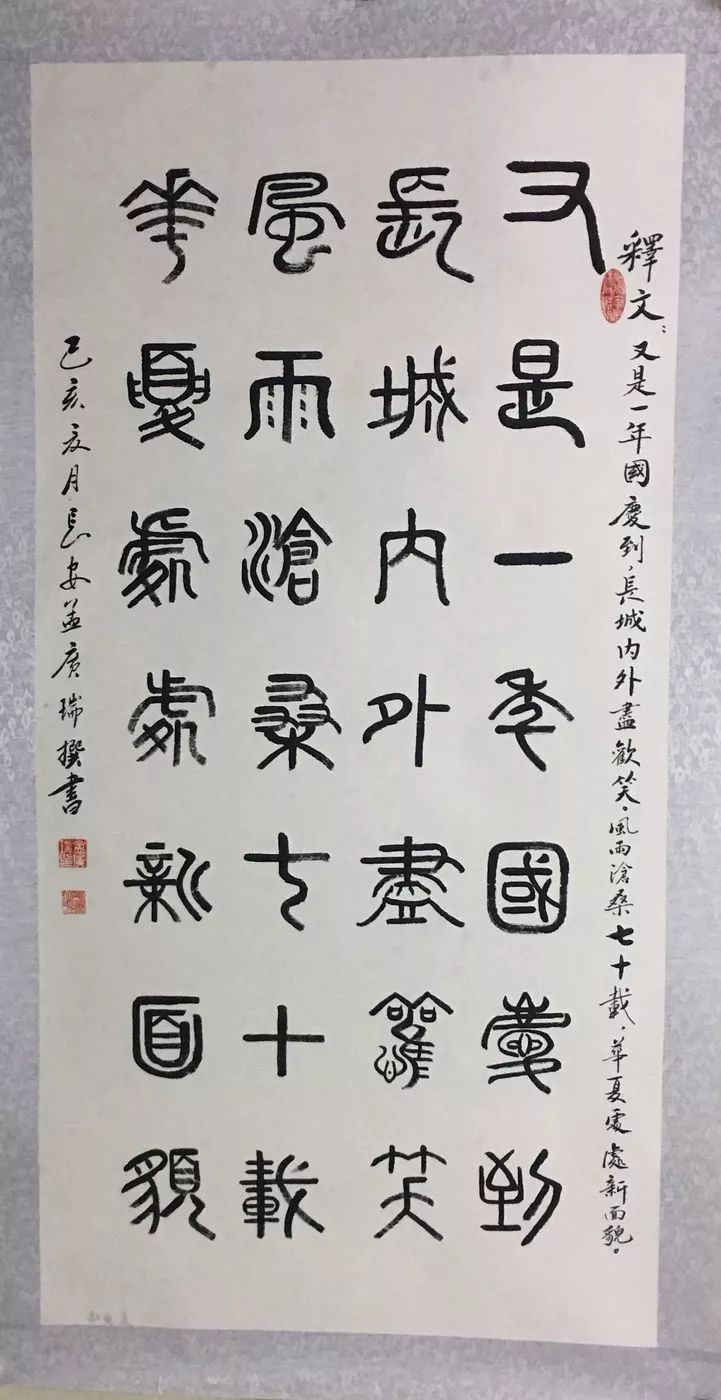 釋文：又是一年國慶到，長城内外盡歡笑。風雨滄桑七十載，華夏處處新面貌。
又是一年國慶到
長城内外盡歡笑
風雨滄桑七十載
華夏處處新面貌
己亥夏月長安孟廣瑞撰書